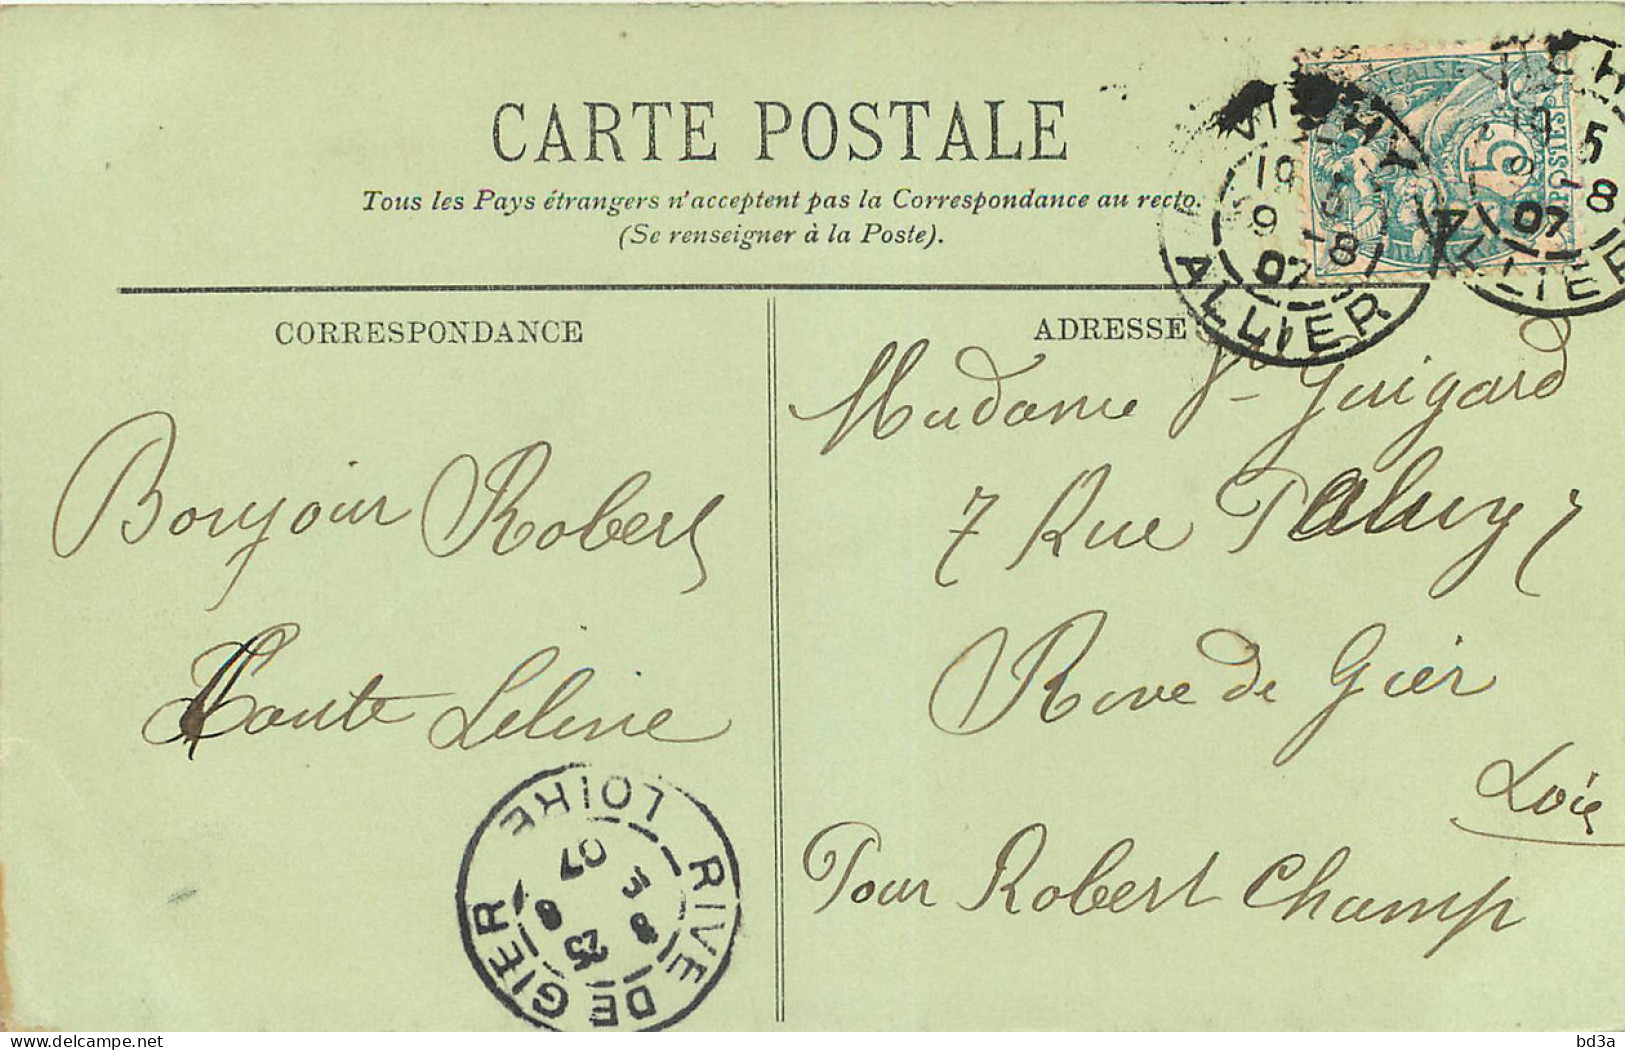 CARTE POSTALE
Tous les Pays étrangers n'acceptent pas la Correspondance au recto.
(Se renseigner à la Poste).
CORRESPONDANCE
Bonjour Robert
Tante Léline
ADRESSE
Madame Vve Guigard
7 Rue Paluy 7
Rive de Gier
Loire
Pour Robert Champ
VICHY
19 5
9 -8
07
ALLIER
5
POSTES
VICHY
19 5
9 -8
07
ALLIER
RIVE DE GIER
LOIRE
8 E
25 8
07
delcampe.net
bd3a